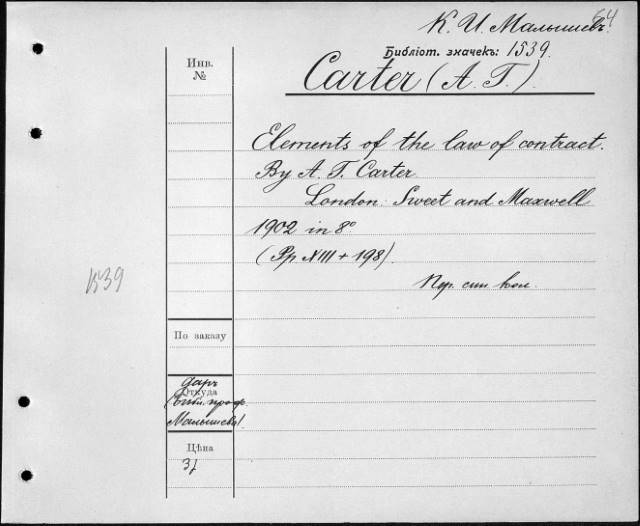 64
К. И. Малышевъ.
Библіот. значекъ: 1539.
Carter (A. T.).
Инв.
№
Elements of the law of contract.
By A. T. Carter.
London: Sweet and Maxwell
1902 in 8°
(Pp XIII + 198).
Пер. син. кол.
1539
По заказу
даръ
Откуда
(библ. проф.
Малышева).
Цѣна